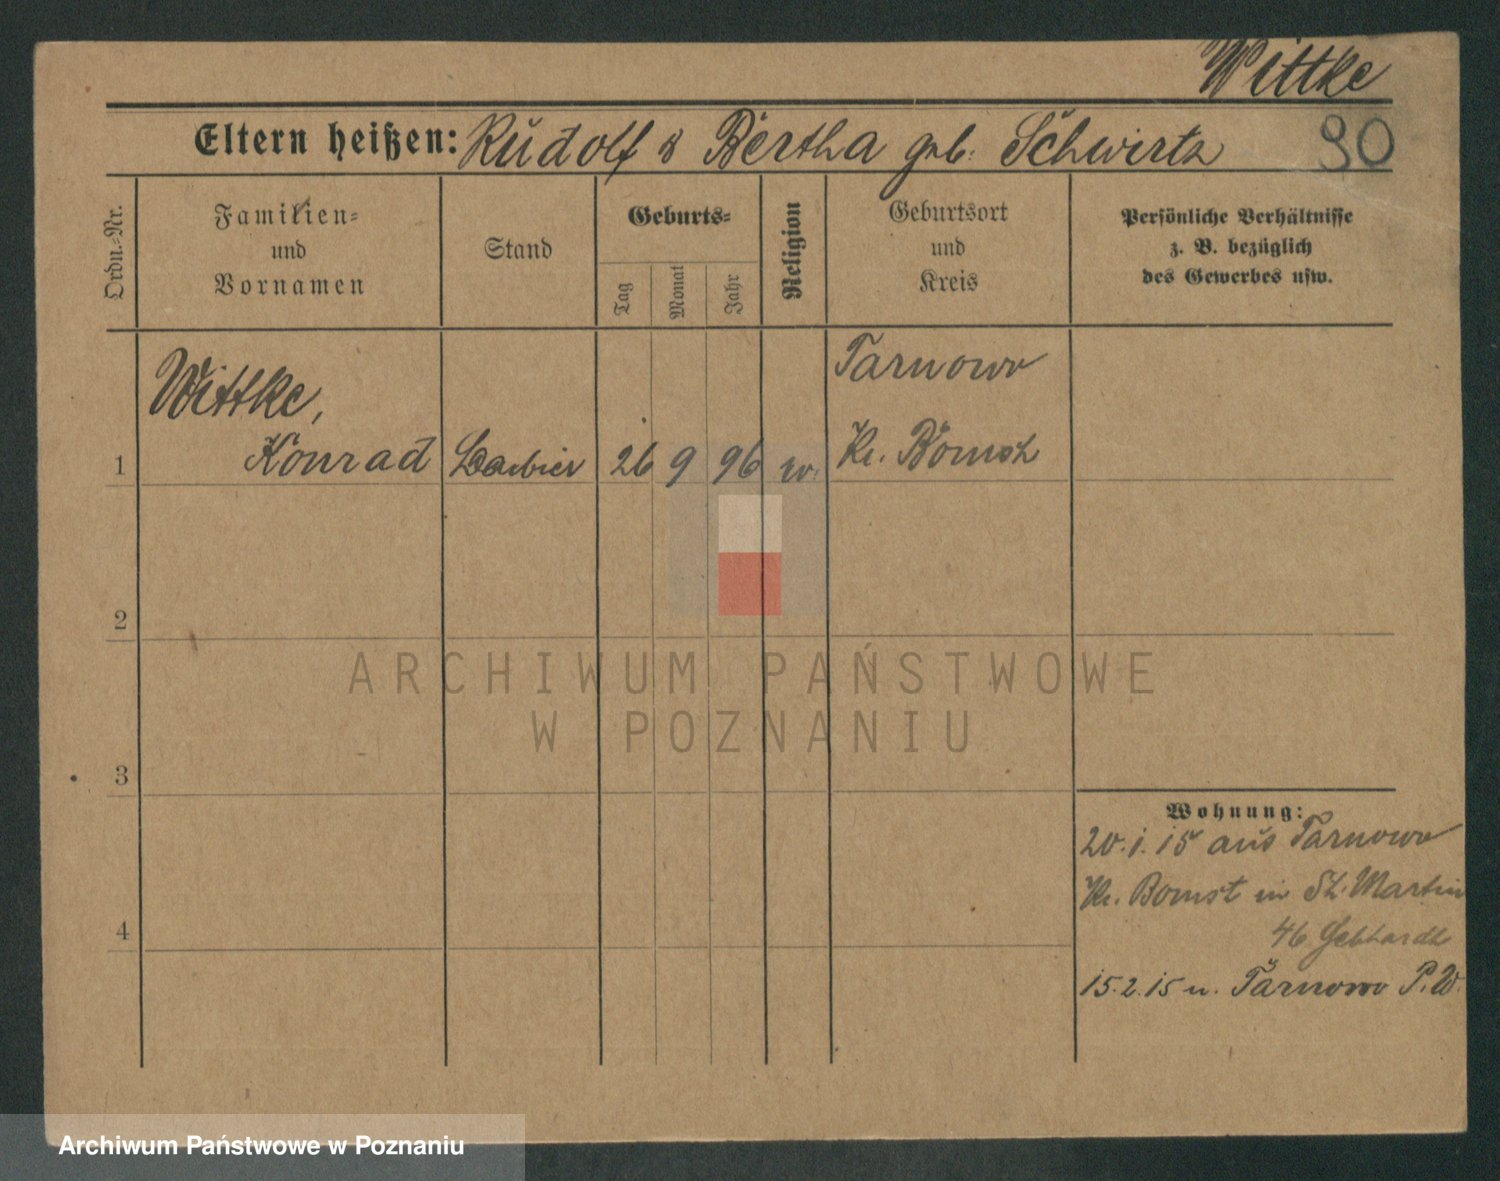 Wittke
Eltern heißen: Rudolf & Bertha geb. Schwirtz 90
Ordn.-Nr.
Familien-
und
Vornamen
Stand
Geburts-
Tag
Monat
Jahr
Religion
Geburtsort
und
Kreis
Persönliche Verhältnisse
z. B. bezüglich
des Gewerbes usw.
Wittke,
Tarnowo
1 Konrad Barbier 26 9 96 ev. Kr. Bomst
2
3
4
Wohnung:
20.1.15 aus Tarnowo
Kr. Bomst in St. Martin
46 Gebhardt
15.2.15 n. Tarnowo P.W.
ARCHIWUM PAŃSTWOWE
W POZNANIU
Archiwum Państwowe w Poznaniu